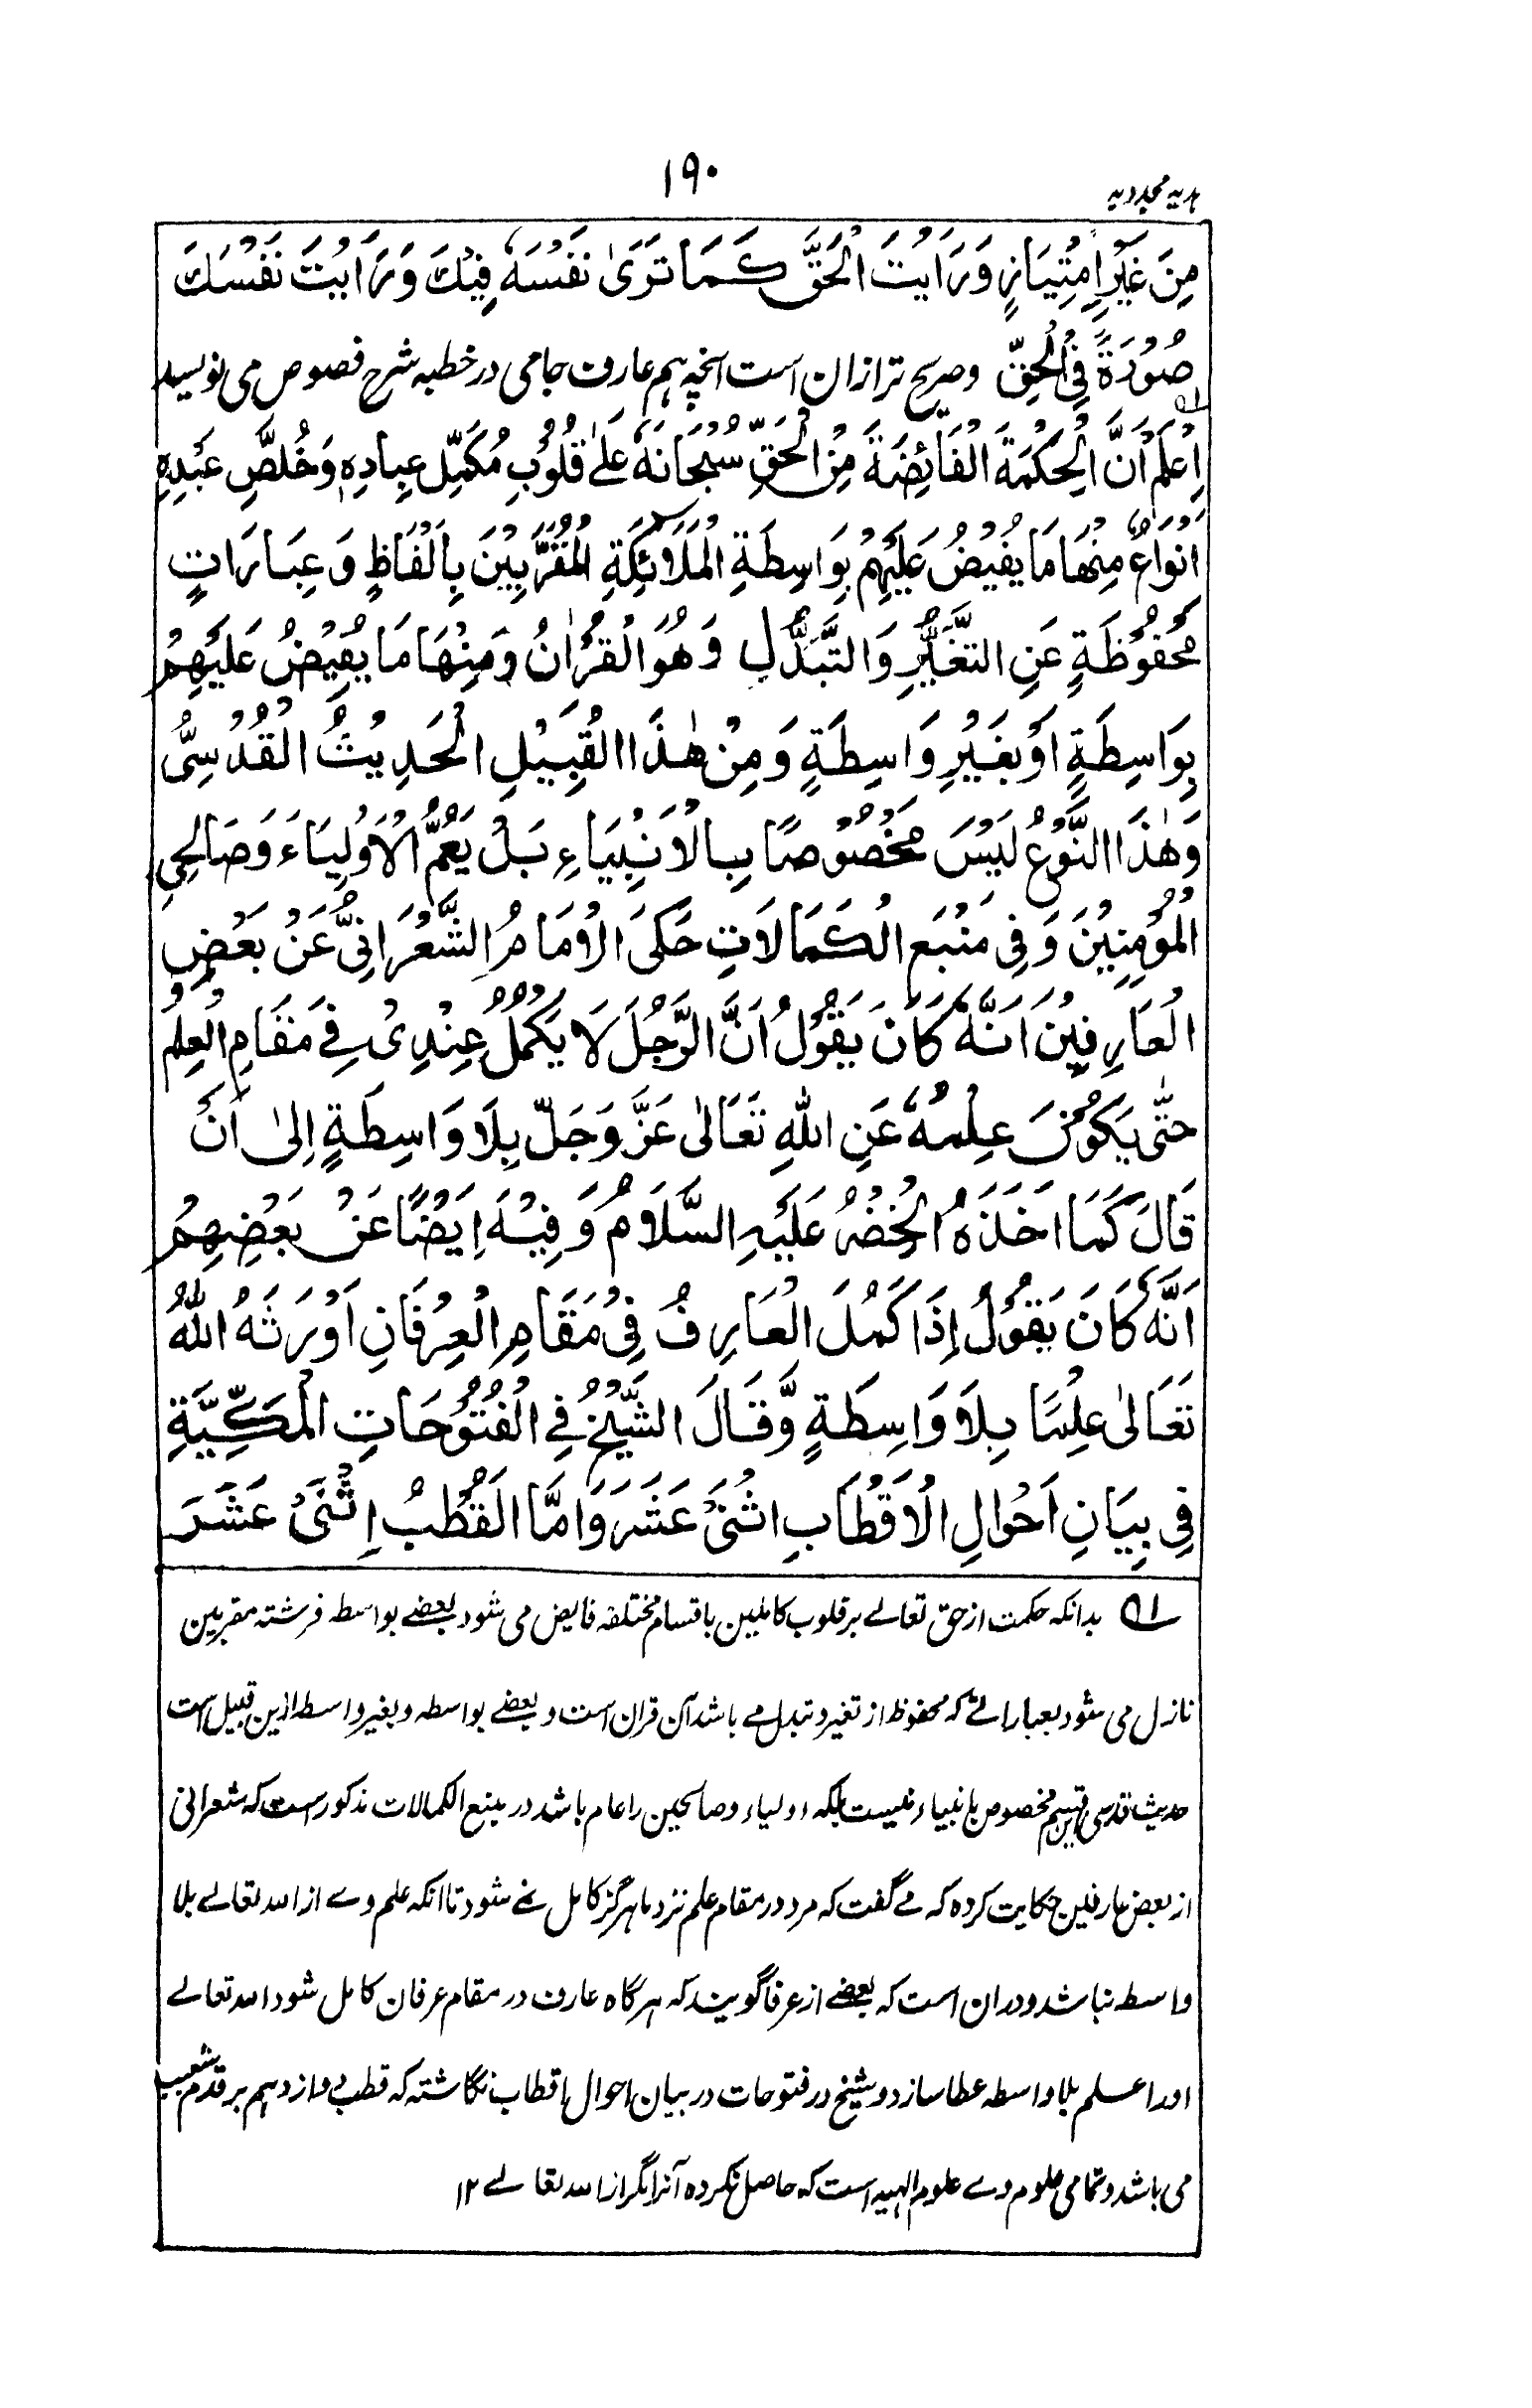 ہدیہ مجددیہ
۱۹۰
مِنَ غَيْرِ اِمْتِيَازٍ وَرَاَيْتَ الْحَقَّ كَمَا تَرَىٰ نَفْسَهٗ فِيْكَ وَرَاَيْتَ نَفْسَكَ
صُوْرَةً فِي الْحَقِّ وصریح تر ازان است آنچہ ہم عارف جامی در خطبہ شرح فصوص می نویسد
اِعْلَمْ اَنَّ الْحِكْمَةَ الْفَائِضَةَ مِنَ الْحَقِّ سُبْحَانَهٗ عَلٰى قُلُوْبِ مُكَمِّلِ عِبَادِهٖ وَخُلَّصِ عَبْدِهٖ
اَنْوَاعٌ مِنْهَا مَا يَفِيْضُ عَلَيْهِمْ بِوَاسِطَةِ الْمَلَائِكَةِ الْمُقَرَّبِيْنَ بِاَلْفَاظٍ وَعِبَارَاتٍ
مَحْفُوْظَةٍ عَنِ التَّغَيُّرِ وَالتَّبَدُّلِ وَهُوَ الْقُرْاٰنُ وَمِنْهَا مَا يَفِيْضُ عَلَيْهِمْ
بِوَاسِطَةٍ اَوْ بِغَيْرِ وَاسِطَةٍ وَمِنْ هٰذَا الْقَبِيْلِ الْحَدِيْثُ الْقُدْسِيُّ
وَهٰذَا النَّوْعُ لَيْسَ مَخْصُوْصًا بِالْاَنْبِيَاءِ بَلْ يَعُمُّ الْاَوْلِيَاءَ وَصَالِحِي
الْمُؤْمِنِيْنَ وَفِي مَنْبَعِ الْكَمَالَاتِ حَكَى الْاِمَامُ الشَّعْرَانِيُّ عَنْ بَعْضِ
الْعَارِفِيْنَ اَنَّهٗ كَانَ يَقُوْلُ اَنَّ الرَّجُلَ لَا يَكْمُلُ عِنْدِىْ فِي مَقَامِ الْعِلْمِ
حَتّٰى يَكُوْنَ عِلْمُهٗ عَنِ اللّٰهِ تَعَالٰى عَزَّ وَجَلَّ بِلَا وَاسِطَةٍ اِلىٰ اَنْ
قَالَ كَمَا اَخَذَهُ الْخِضْرُ عَلَيْهِ السَّلَامُ وَفِيْهِ اَيْضًا عَنْ بَعْضِهِمْ
اَنَّهٗ كَانَ يَقُوْلُ اِذَا كَمُلَ الْعَارِفُ فِيْ مَقَامِ الْعِرْفَانِ اَوْرَثَهُ اللّٰهُ
تَعَالىٰ عِلْمًا بِلَا وَاسِطَةٍ وَّقَالَ الشَّيْخُ فِي الْفُتُوْحَاتِ الْمَكِّيَّةِ
فِي بَيَانِ اَحْوَالِ الْاَقْطَابِ اثْنَىْ عَشَرَ وَاَمَّا الْقُطْبُ اِثْنَىْ عَشَرَ
۱ بدانکہ حکمت از حق تعالے بر قلوب کاملین باقسام مختلفہ فایض می شود بعضے بواسطہ فرشتہ مقربین
نازل می شود بعباراتے کہ محفوظ از تغیر و تبدل مے باشد آن قران است و بعضے بواسطہ و بغیر واسطہ ازین قبیل است
حدیث قدسی این قسم مخصوص بانبیاء نیست بلکہ اولیاء وصالحین را عام باشد در منبع الکمالات مذکور است کہ شعرانی
از بعض عارفین حکایت کردہ کہ مے گفت کہ مرد در مقام علم نزد ما ہرگز کامل نمے شود تا آنکہ علم وے از اللہ تعالے بلا
واسطہ نباشد و دران است کہ بعضے از عرفا گویند کہ ہرگاہ عارف در مقام عرفان کامل شود اللہ تعالے
اورا علم بلا واسطہ عطا سازد و شیخ در فتوحات در بیان احوال اقطاب نگاشتہ کہ قطب دوازدہم بر قدم شعیب
می باشد و تمامی علوم وے علوم الہیہ است کہ حاصل نکردہ آنرا مگر از اللہ تعالے ۱۲